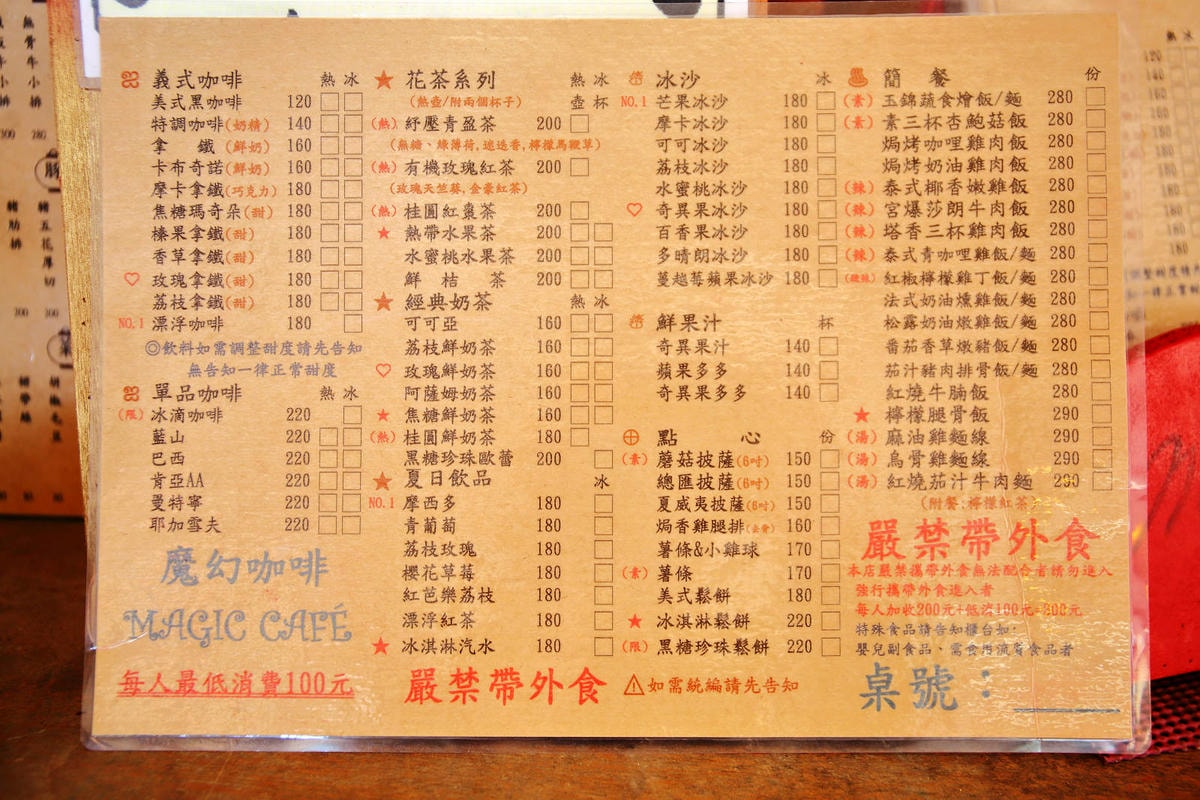 義式咖啡 熱 冰
美式黑咖啡 120
特調咖啡(奶精) 140
拿 鐵(鮮奶) 160
卡布奇諾(鮮奶) 160
摩卡拿鐵(巧克力) 180
焦糖瑪奇朵(甜) 180
榛果拿鐵(甜) 180
香草拿鐵(甜) 180
玫瑰拿鐵(甜) 180
荔枝拿鐵(甜) 180
NO.1 漂浮咖啡 180
◎飲料如需調整甜度請先告知
無告知一律正常甜度
單品咖啡 熱 冰
(限) 冰滴咖啡 220
藍山 220
巴西 220
肯亞AA 220
曼特寧 220
耶加雪夫 220
魔幻咖啡
MAGIC CAFÉ
每人最低消費100元
★ 花茶系列 熱 冰
(熱壺/附兩個杯子) 壺 杯
(熱) 紓壓青盈茶 200
(無糖、綠薄荷,迷迭香,檸檬馬鞭草)
(熱) 有機玫瑰紅茶 200
(玫瑰天竺葵,金豪紅茶)
(熱) 桂圓紅棗茶 200
★ 熱帶水果茶 200
水蜜桃水果茶 200
鮮 桔 茶 200
★ 經典奶茶 熱 冰
可可亞 160
荔枝鮮奶茶 160
♡ 玫瑰鮮奶茶 160
阿薩姆奶茶 160
★ 焦糖鮮奶茶 160
(熱) 桂圓鮮奶茶 180
黑糖珍珠歐蕾 200
★ 夏日飲品 冰
NO.1 摩西多 180
青葡萄 180
荔枝玫瑰 180
櫻花草莓 180
紅芭樂荔枝 180
漂浮紅茶 180
★ 冰淇淋汽水 180
嚴禁帶外食
冰沙 冰
NO.1 芒果冰沙 180
摩卡冰沙 180
可可冰沙 180
荔枝冰沙 180
水蜜桃冰沙 180
♡ 奇異果冰沙 180
百香果冰沙 180
多晴朗冰沙 180
蔓越莓蘋果冰沙 180
鮮果汁 杯
奇異果汁 140
蘋果多多 140
奇異果多多 140
點 心 份
(素) 蘑菇披薩(6吋) 150
總匯披薩(6吋) 150
夏威夷披薩(6吋) 150
焗香雞腿排(去骨) 160
薯條&小雞球 170
(素) 薯條 170
美式鬆餅 180
★ 冰淇淋鬆餅 220
(限) 黑糖珍珠鬆餅 220
⚠如需統編請先告知
簡 餐 份
(素) 玉錦蔬食燴飯/麵 280
(素) 素三杯杏鮑菇飯 280
焗烤咖哩雞肉飯 280
焗烤奶油雞肉飯 280
(辣) 泰式椰香嫩雞飯 280
(辣) 宮爆莎朗牛肉飯 280
(辣) 塔香三杯雞肉飯 280
(辣) 泰式青咖哩雞飯/麵 280
(酸辣) 紅椒檸檬雞丁飯/麵 280
法式奶油燻雞飯/麵 280
松露奶油燉雞飯/麵 280
番茄香草燉豬飯/麵 280
茄汁豬肉排骨飯/麵 280
紅燒牛腩飯 280
★ 檸檬腿骨飯 290
(湯) 麻油雞麵線 290
(湯) 烏骨雞麵線 290
(湯) 紅燒茄汁牛肉麵 290
(附餐:檸檬紅茶)
嚴禁帶外食
本店嚴禁攜帶外食無法配合者請勿進入
強行攜帶外食進入者
每人加收200元+低消100元=300元
特殊食品請告知櫃台如:
嬰兒副食品、需食用流質食品者
桌號: